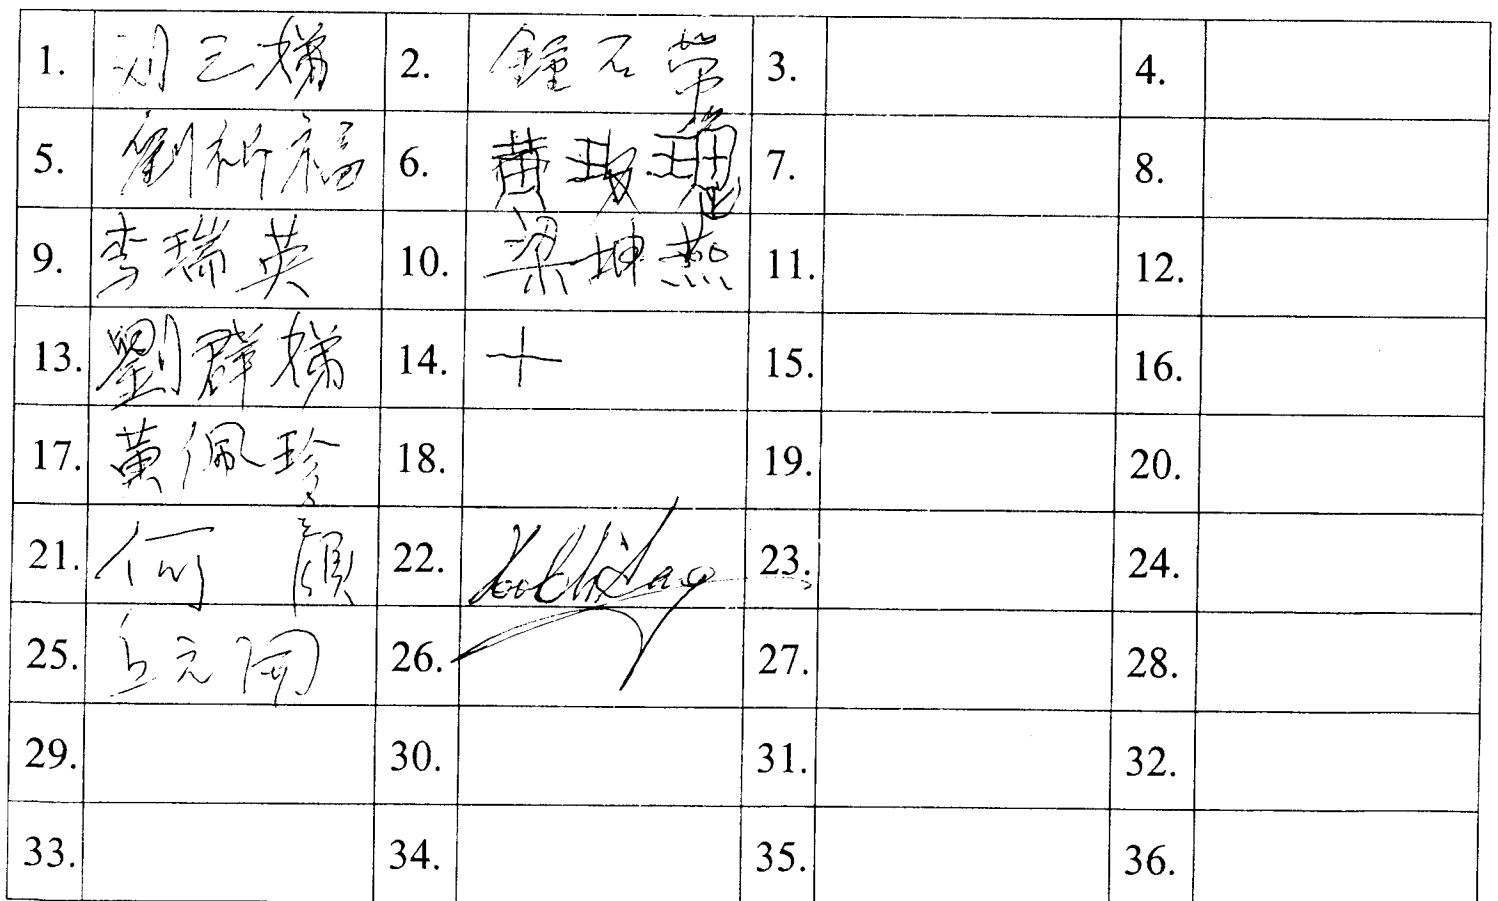 1. 刘三娣 2. 鐘石 3. 4.
5. 劉祈福 6. 黄玫瑰 7. 8.
9. 李瑞英 10. 梁坤燕 11. 12.
13. 劉群娣 14. 十 15. 16.
17. 黃佩珍 18. 19. 20.
21. 何 22. 23. 24.
25. 丘元 26. 27. 28.
29. 30. 31. 32.
33. 34. 35. 36.